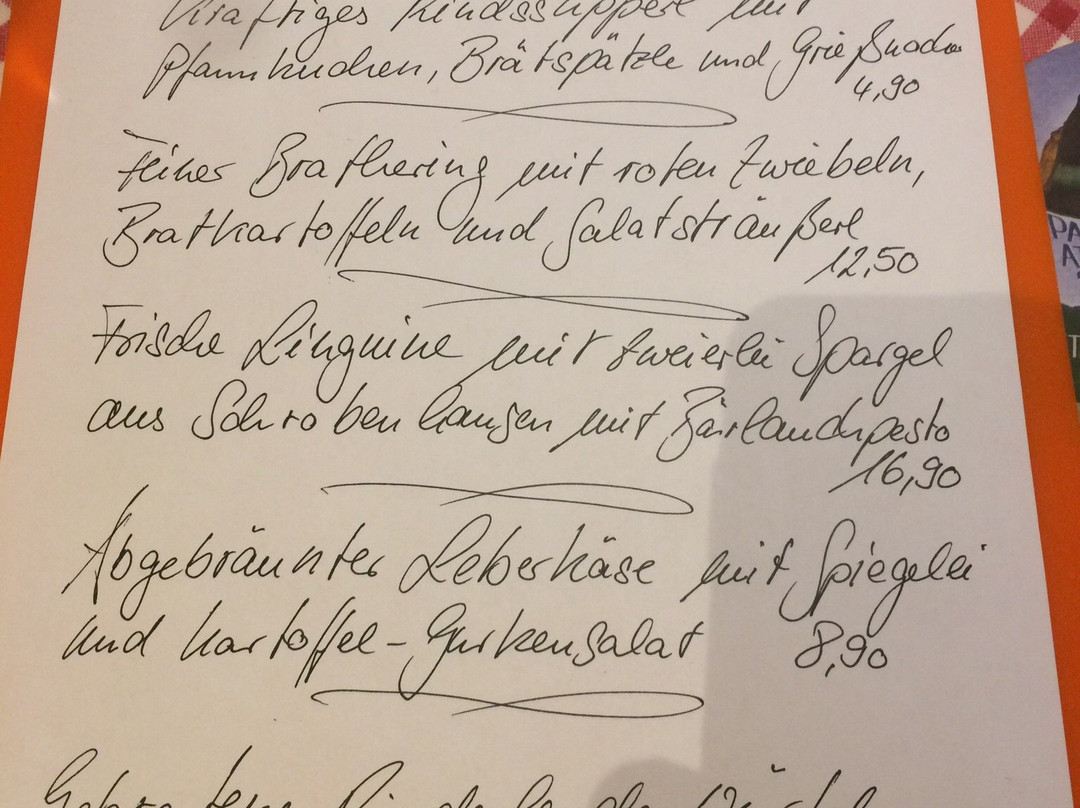 Kräftiges Rindssupperl mit
Pfannkuchen, Brätspätzle und Grießnocken
4,90
Feiner Brathering mit roten Zwiebeln,
Bratkartoffeln und Salatsträußerl
12,50
Frische Linguine mit zweierlei Spargel
aus Schrobenhausen mit Bärlauchpesto
16,90
Abgebräunter Leberkäse mit Spiegelei
und Kartoffel-Gurkensalat 8,90
PA